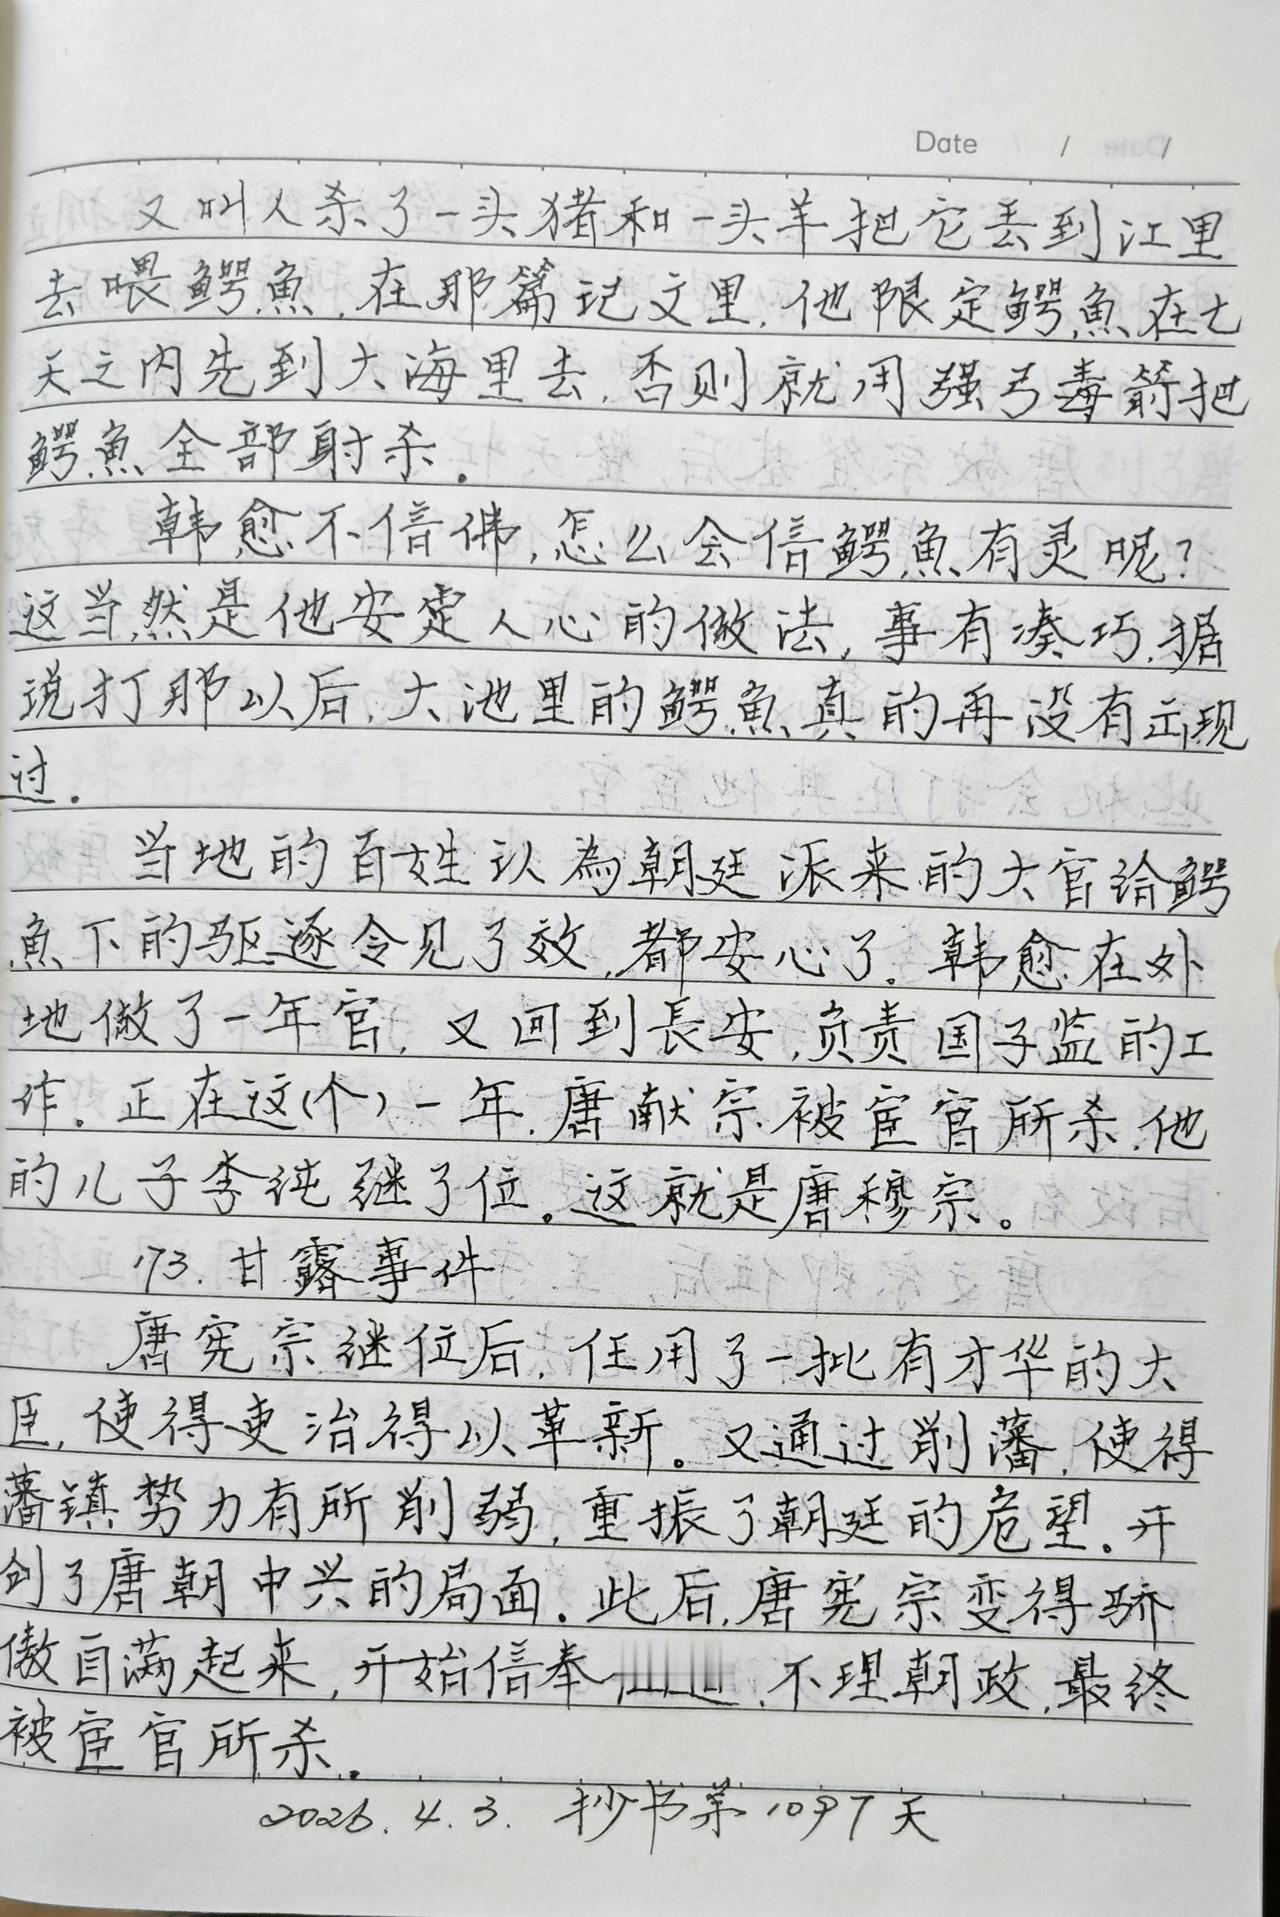 Date / /
又叫人杀了一头猪和一头羊把它丢到江里
去喂鳄魚,在那篇记文里,他限定鳄魚在七
天之内先到大海里去,否则就用强弓毒箭把
鳄魚全部射杀。
韩愈不信佛,怎么会信鳄魚有灵呢?
这当然是他安定人心的做法,事有凑巧,据
说打那以后,大池里的鳄魚真的再没有出现
过.
当地的百姓认為朝廷派来的大官给鳄
魚下的驱逐令见了效,都安心了。韩愈在外
地做了一年官,又回到長安,负责国子监的工
作。正在这(个)一年,唐献宗被宦官所杀,他
的儿子李纯继了位。这就是唐穆宗。
173.甘露事件
唐宪宗继位后,任用了一批有才华的大
臣,使得吏治得以革新。又通过削藩,使得
藩镇势力有所削弱,重振了朝廷的危望。开
创了唐朝中兴的局面.此后,唐宪宗变得骄
傲自满起来,开始信奉,不理朝政,最终
被宦官所杀.
2026.4.3. 抄书第1097天